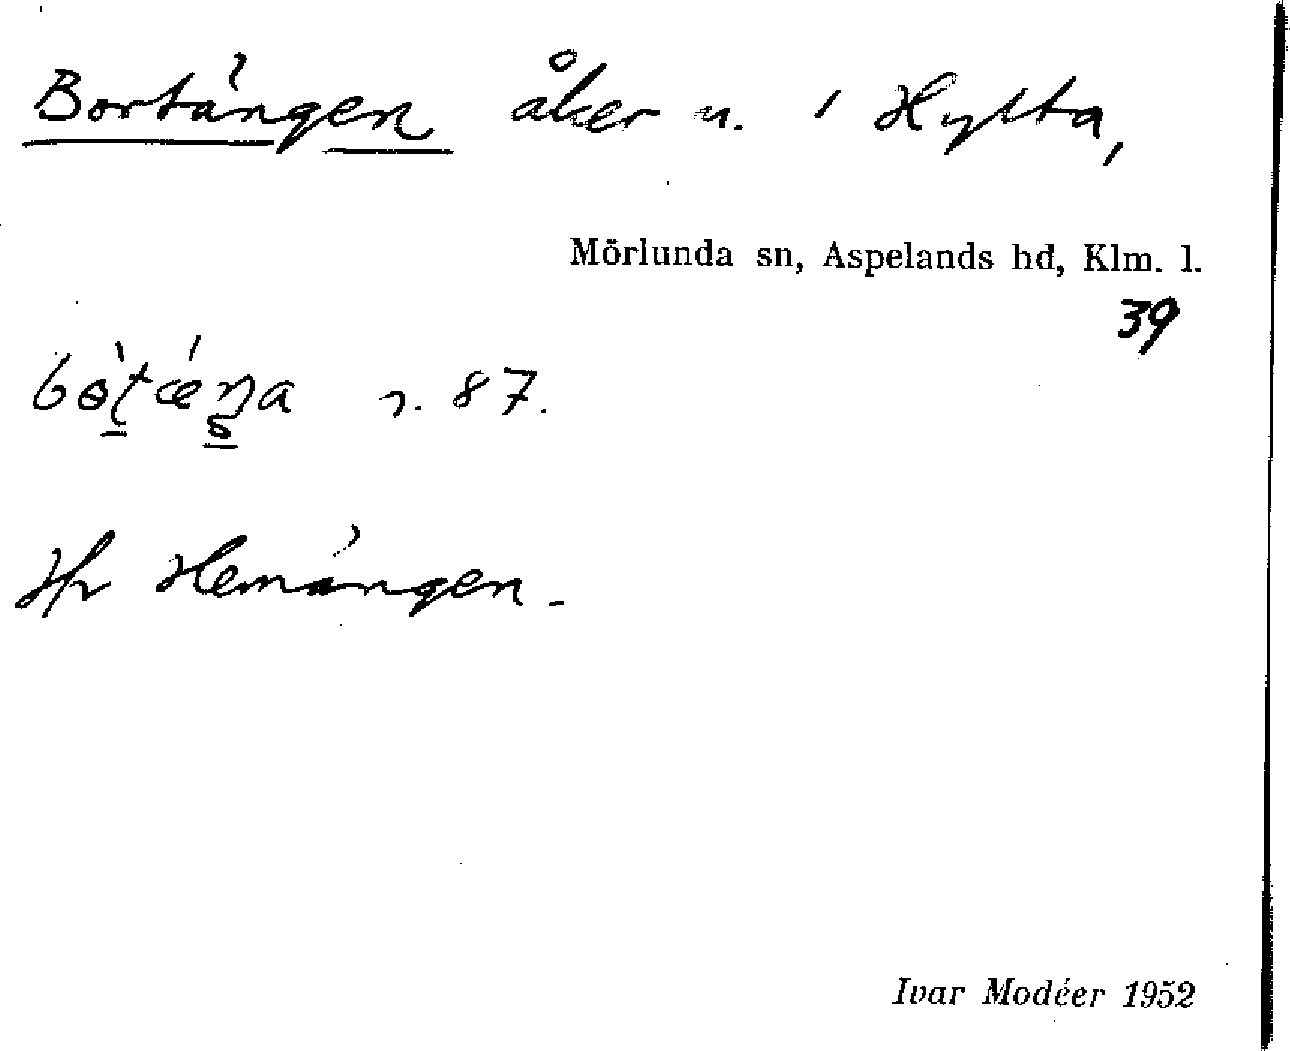 Bortängen åker n. i Hytta,
Mörlunda sn, Aspelands hd, Klm. l.
39
n. 87.
Jfr Hemängen.
Ivar Modéer 1952